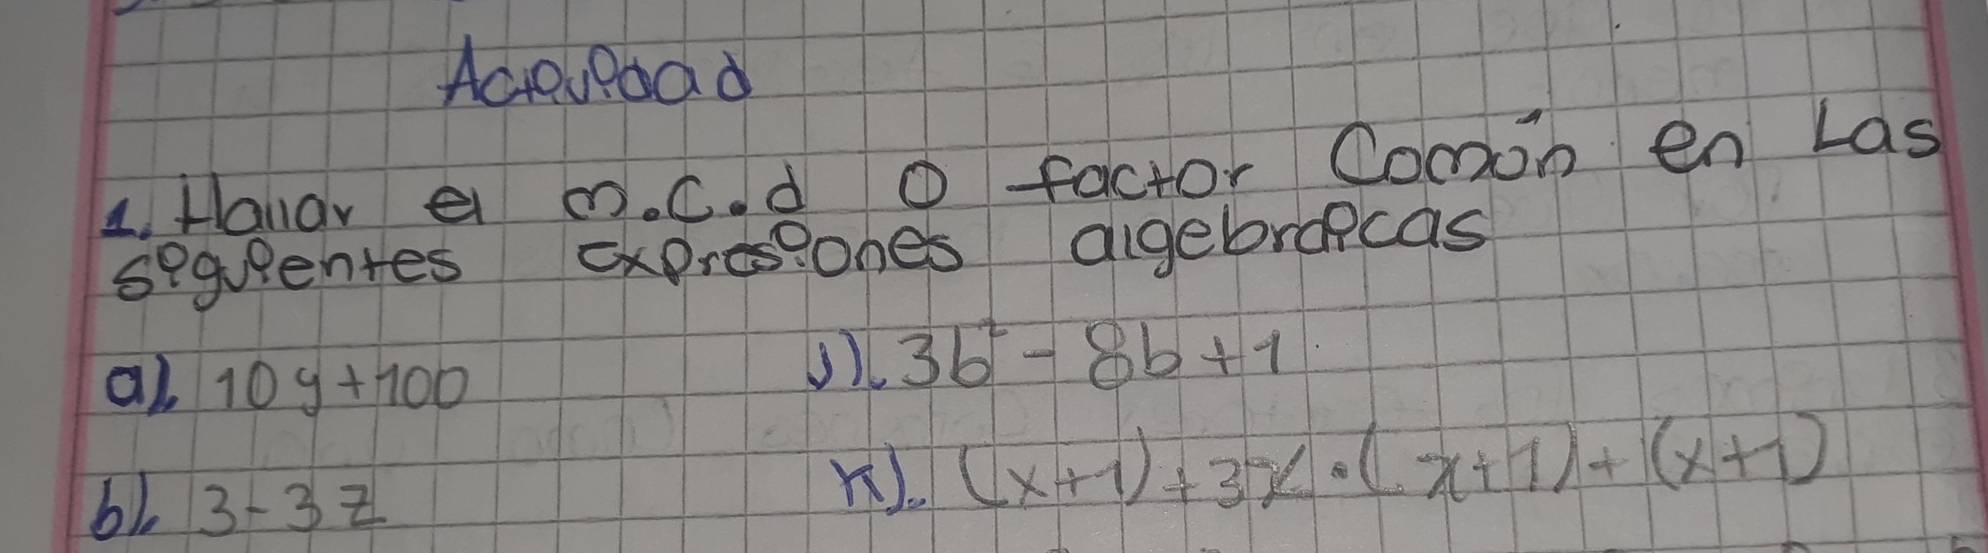 Actividad
1. Hallar el m.c.d o factor Común en Las
siguientes expresiones algebraicas
a). 10y+100
J). 3b² - 8b+1
b). 3-3z
K). (x+1)+3x·(x+1)+(x+1)